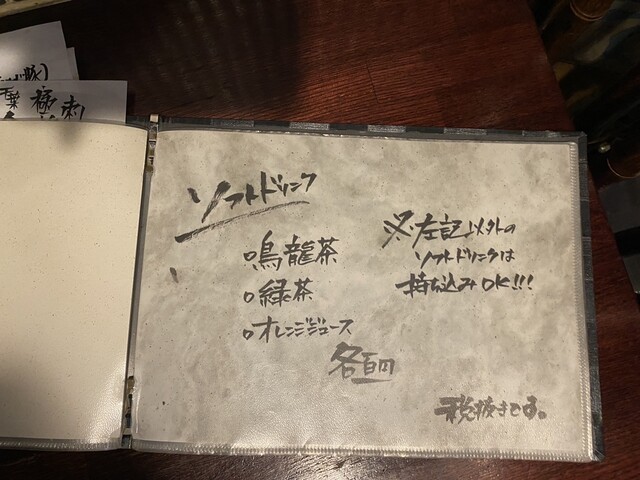 ソフトドリンク
○烏龍茶
○緑茶
○オレンジジュース
各百円
※左記以外の
ソフトドリンクは
持ち込みOK!!!
税抜きです。